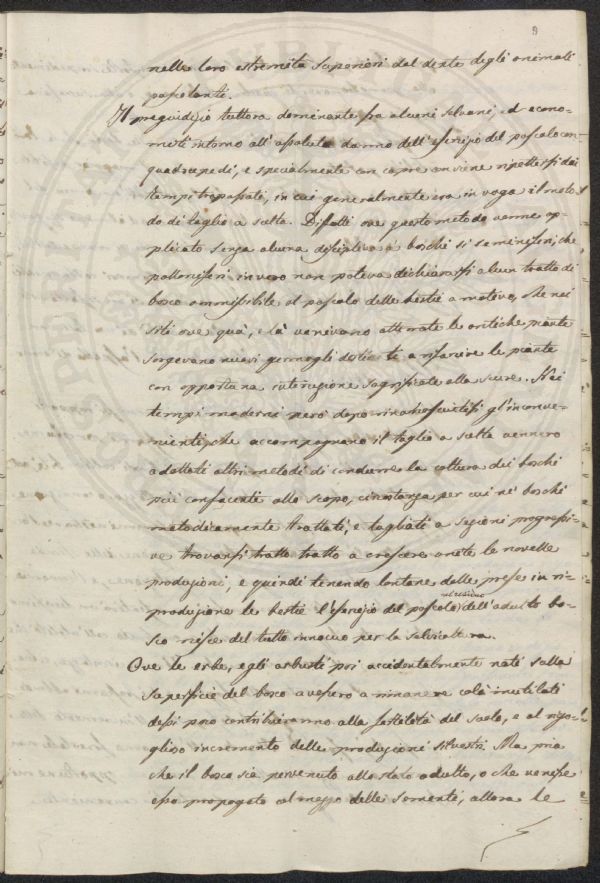 9
nelle loro estremità superiori dal dente degli animali
pascolanti.
Il pregiudizio tuttora dominante fra alcuni silvani, ed econo-
misti intorno all'assoluto danno dell'esercizio del pascolo con
quadrupedi, e specialmente con capre conviene ripettersi dai
tempi trapassati, in cui generalmente era in voga il meto-
do di taglio a scelta. Difatti ove questo metodo venne ap-
plicato senza alcuna disciplina a' boschi sì seminiferi, che
polloniferi in vero non poteva dichiararsi alcun tratto di
bosco ammissibile al pascolo delle bestie a motivo, che nei
siti ove quà, e là venivano atterrate le antiche piante
sorgevano nuovi germogli destinati a risarcire le piante
con opportuna interuzione sagrificate alla scure. Nei
tempi moderni però dopo riconosciutisi gl'inconve-
nienti, che accompagnano il taglio a scelta vennero
adottati altri metodi di condurre la coltura dei boschi
più confacenti allo scopo, circostanza per cui ne' boschi
metodicamente trattati, e tagliati a sezioni progressi-
ve trovansi tratto tratto a crescere unite le novelle
produzioni, e quindi tenendo lontane dalle prese in ri-
produzione le bestie l'esercizio del pascolo nel residuo dell'adulto bo-
sco riesce del tutto innocuo per la selvicoltura.
Ove le erbe, e gli arbusti poi accidentalmente nati sulla
superficie del bosco avessero a rimanere colà inutilati
dessi poco contribuiranno alla fertilità del suolo, e al rigo-
glioso incremento delle produzioni silvestri. Ma pria
che il bosco sia pervenuto allo stato adulto, o che venisse
esso propagato al mezzo delle sementi, allora le